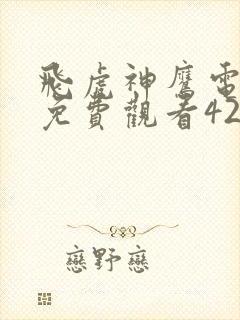 飛虎神鷹電
免費觀看42
戀野戀